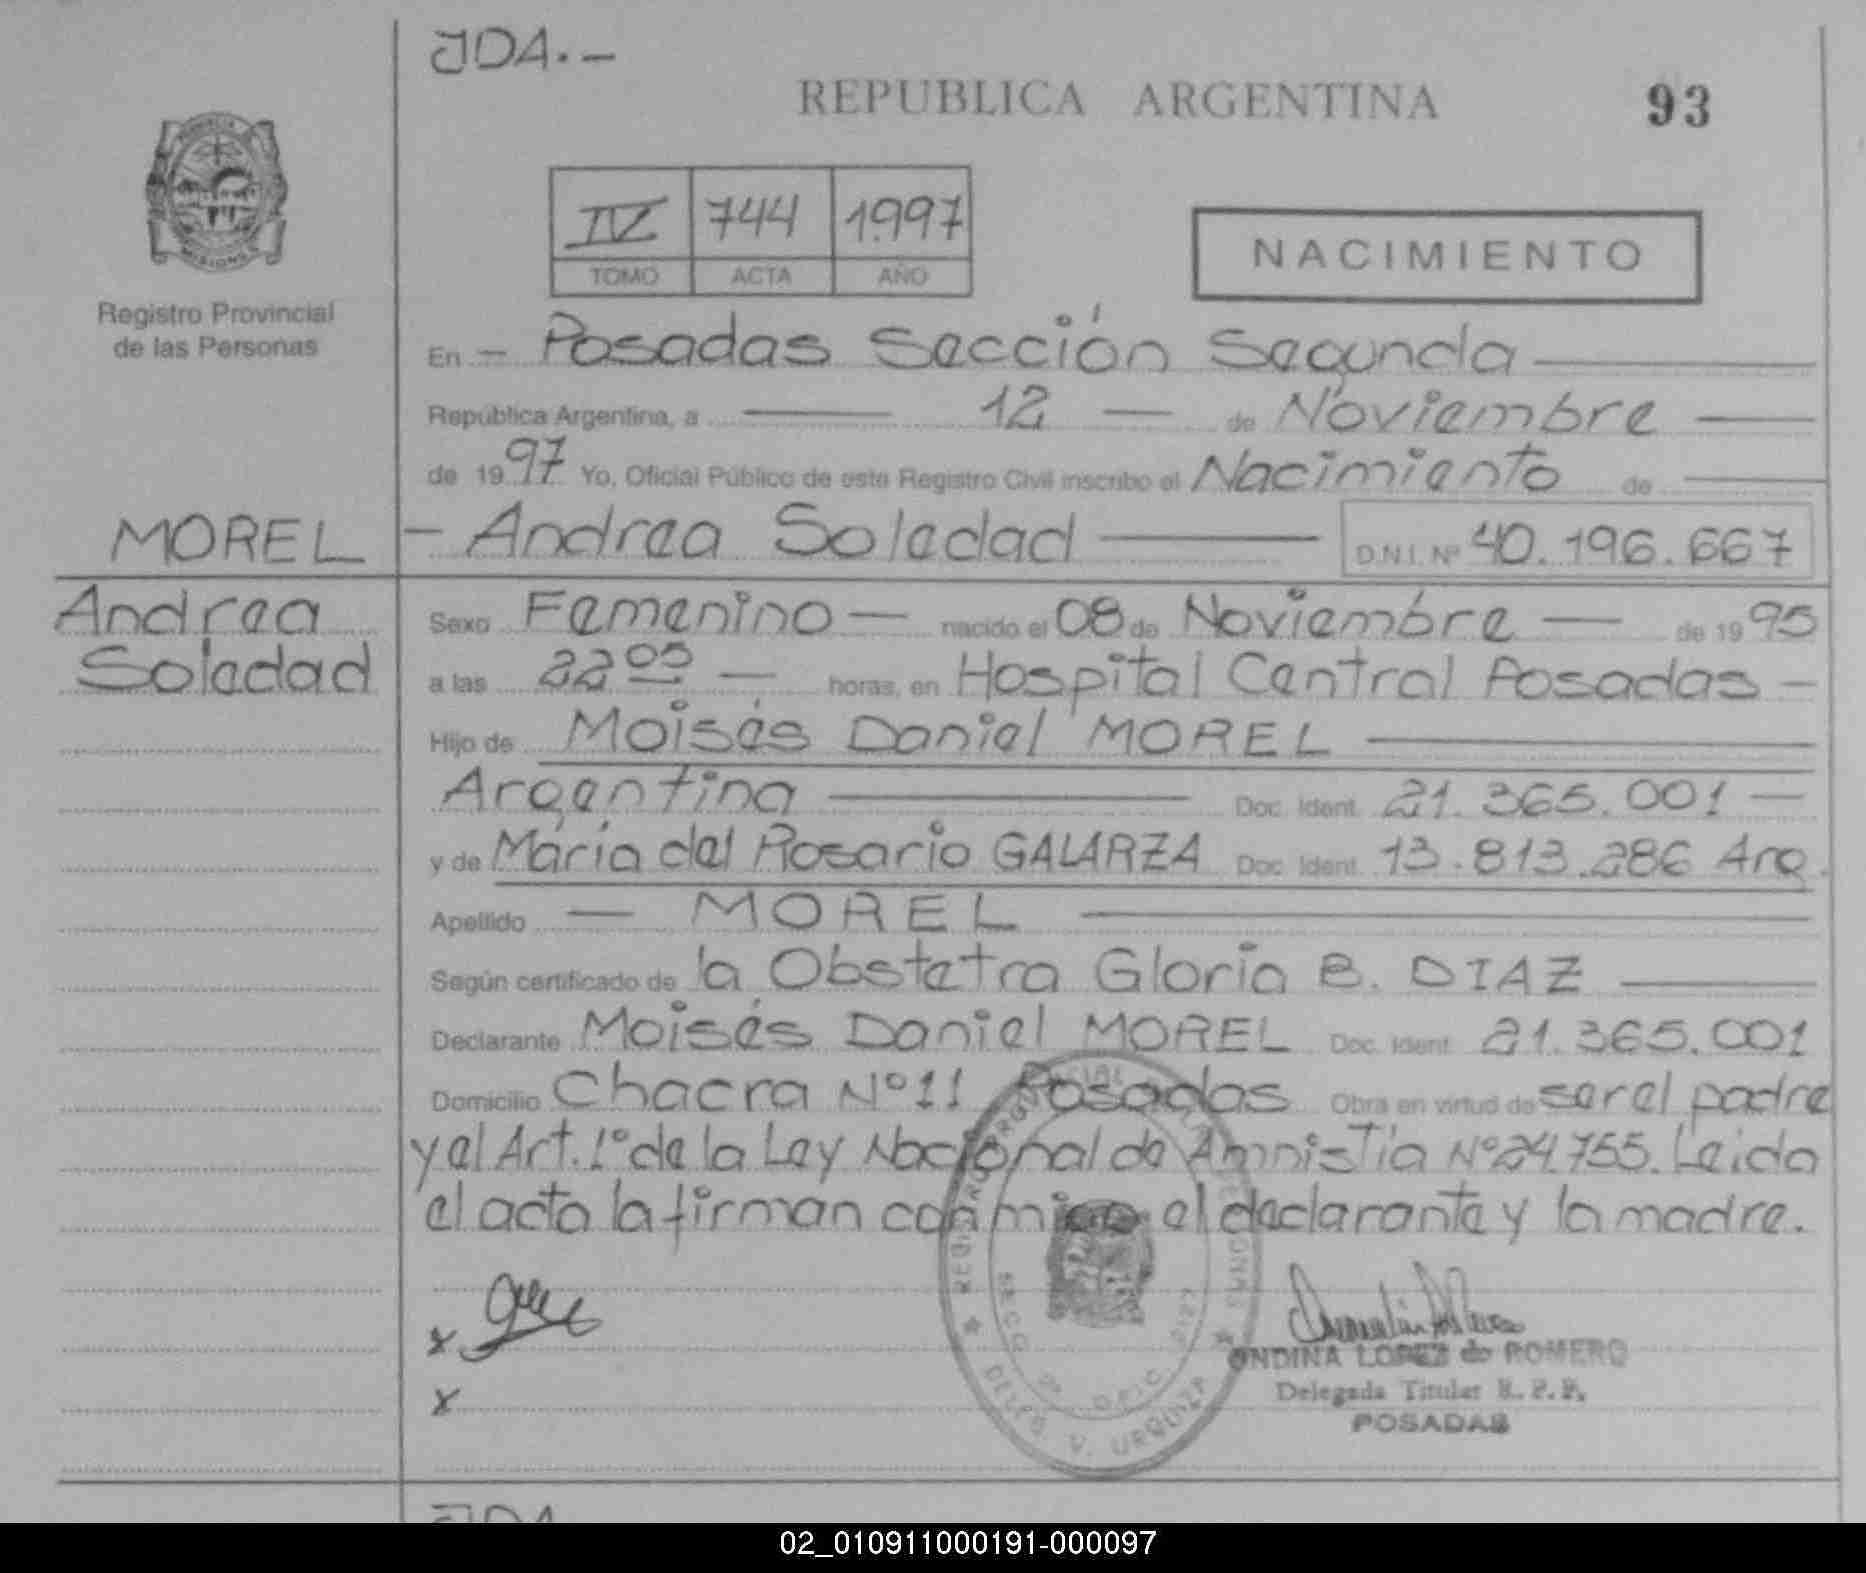 JDA.-
REPUBLICA ARGENTINA
93
PROVINCIA
MISIONES
Registro Provincial
de las Personas
IV 744 1997
TOMO ACTA AÑO
NACIMIENTO
En - Posadas Sección Segunda
República Argentina, a 12 - de Noviembre
de 1997 Yo, Oficial Público de este Registro Civil inscribo el Nacimiento de
MOREL
Andrea
Soledad
- Andrea Soledad D.N.I. Nº 40.196.667
Sexo Femenino - nacido el 08 de Noviembre - de 1995
a las 22 05 - horas, en Hospital Central Posadas -
Hijo de Moisés Daniel MOREL
Argentina Doc. Ident. 21.365.001 -
y de María del Rosario GALARZA Doc. Ident. 13.813.286 Arg.
Apellido - MOREL
Según certificado de la Obstetra Gloria B. DIAZ
Declarante Moisés Daniel MOREL Doc. Ident. 21.365.001
Domicilio Chacra Nº 11 Posadas Obra en virtud de ser el padre
y el Art. 1º de la Ley Nacional de Amnistía Nº 24.755. Leida
el acta la firman conmigo el declarante y la madre.
x
x
ONDINA LOPEZ de ROMERO
Delegada Titular R. P. P.
POSADAS
DELEG. V. URQUIZA
JDA
02_010911000191-000097